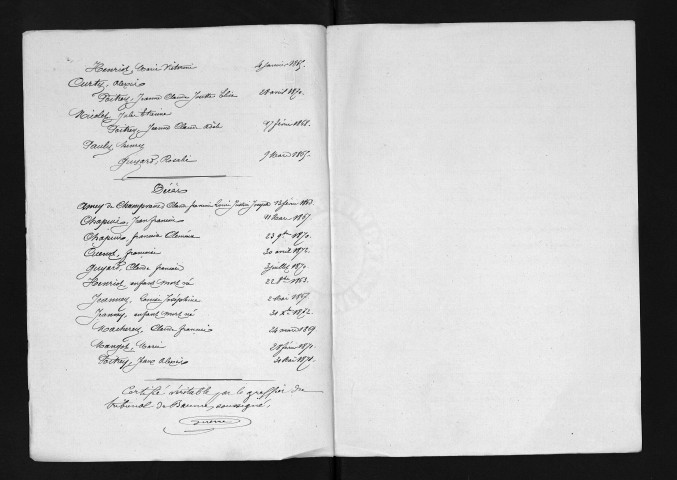 Henriot, Marie Victorine 4 janvier 1865.
Curty, Alexis
Poitrey, Jeanne Claude Justine 28 avril 1870.
Nicolet, Jules Etienne
Poitrey, Jeanne Claude 27 février 1868.
Pauly, Henry
Guyard, Rosalie 9 Mars 1865.
Décès
de Champvans Claude francois Louis Justin Joseph février 1863.
Chapuis, Jean francois 11 Mars 1867.
Chapuis, francois Clément 23 9bre 1870.
francoise 30 avril 1872.
Guyard, Claude francois juillet 1870.
Henriot, enfant mort né 22 8bre 1863.
Jeanney, Louise Joséphine 2 Mai 1867.
Jeanney, enfant mort né 31 Xbre 1872.
Claude francois 24 mars 1869
Marie 28 février 1871.
Poitrey, Jean Alexis Mai 1871.
Certifié véritable par le greffier du
tribunal de Baume, soussigné,